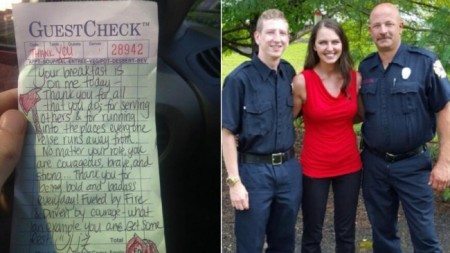 GUESTCHECK™
Thank you 28942
APPT-SOUP/SAL-ENTREE-VEG/POT-DESSERT-BEV
Your breakfast is
on me today -
Thank you for all
that you do; for serving
others & for running
into the places everyone
else runs away from.
No matter your role, you
are courageous, brave, and
strong... Thank you for
being bold and badass
everyday! Fueled by Fire
& Driven by courage - what
an example you are. Get some
Rest
Total